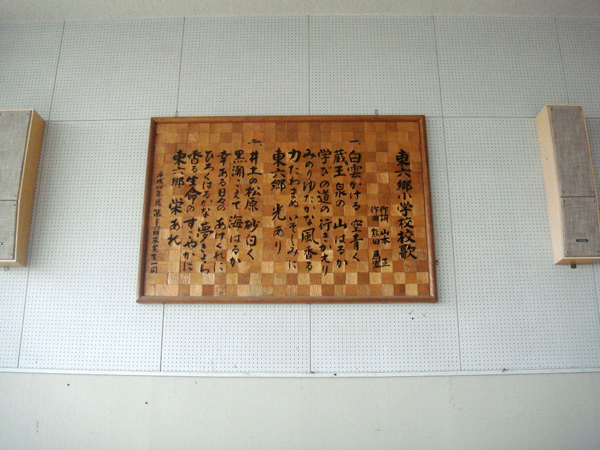 東六郷小学校校歌
作詞 山本 正
作曲
一、白雲かける 空青く
蔵王泉の 山はるか
学びの道の行きかえり
みのりゆたかな風香る
力たわまぬ いそしみに
東六郷 光あり
二、井土の松原 砂白く
黒潮こえて 海はるか
幸ある日々の あけくれに
ひろくはるかな 夢きよら
香る生命の すこやかに
東六郷 栄あれ